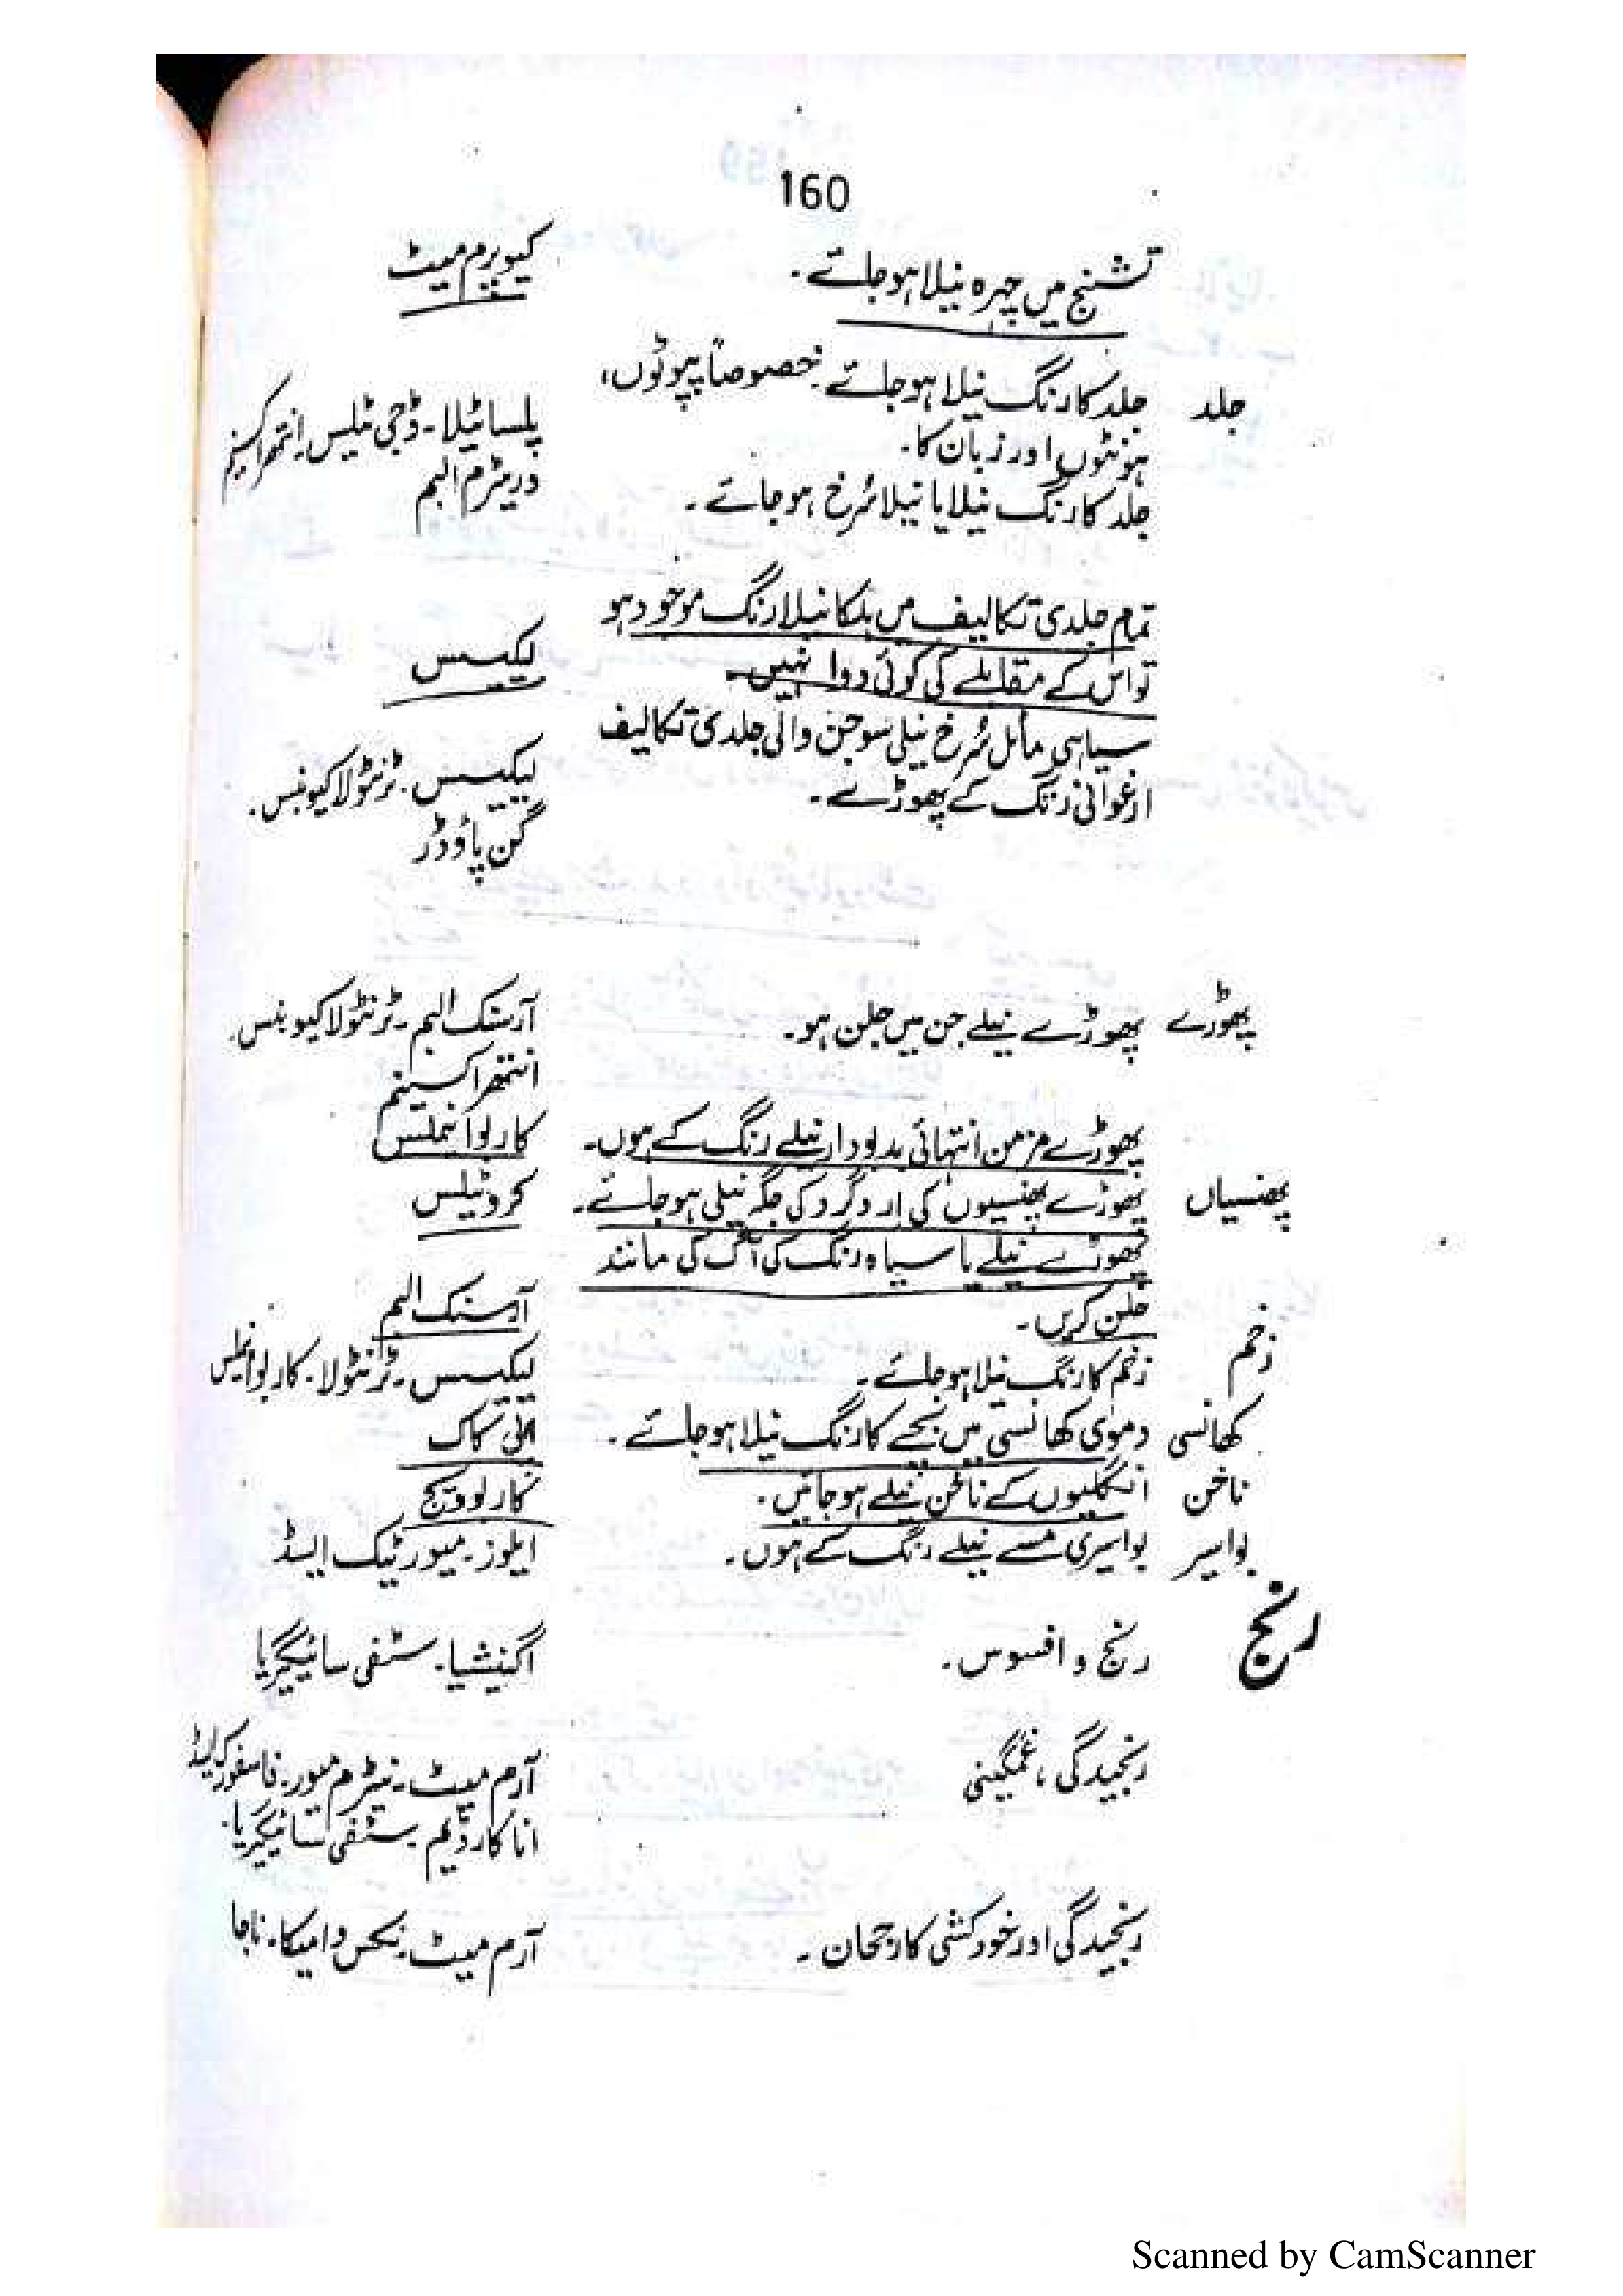 160
تشنج میں چہرہ نیلا ہو جائے۔ کیوپرم میٹ
جلد جلد کا رنگ نیلا ہو جائے۔ خصوصاً پپوٹوں،
ہونٹوں اور زبان کا۔ پلساٹیلا۔ ڈجی ٹیلس۔ انتھراکسینم
جلد کا رنگ نیلا یا نیلا سُرخ ہو جائے۔ وریٹرم البم
تمام جلدی تکالیف میں ہلکا نیلا رنگ موجود ہو
تو اس کے مقابلے کی کوئی دوا نہیں۔ لیکیسس
سیاہی مائل سُرخ نیلی سوجن والی جلدی تکالیف
ارغوانی رنگ کے پھوڑے۔ لیکیسس۔ ٹرنٹولا کیوبنس۔
گن پاؤڈر
پھوڑے پھوڑے نیلے جن میں جلن ہو۔ آرسنک البم۔ ٹرنٹولا کیوبنس۔
انتھراکسینم
پھوڑے مزمن انتہائی بدبودار نیلے رنگ کے ہوں۔ کاربوانیملس
پھنسیاں پھوڑے پھنسیوں کی اردگرد کی جگہ نیلی ہو جائے۔ کروٹیلس
پھوڑے نیلے یا سیاہ رنگ کی آگ کی مانند
جلن کریں۔ آرسنک البم
زخم زخم کا رنگ نیلا ہو جائے۔ لیکیسس۔ ٹرنٹولا۔ کاربوانیملس
کھانسی دموی کھانسی میں بچے کا رنگ نیلا ہو جائے۔ اپی کاک
ناخن انگلیوں کے ناخن نیلے ہو جائیں۔ کاربو ویج
بواسیر بواسیری مسے نیلے رنگ کے ہوں۔ ایلوز۔ میورٹیک ایسڈ
رنج
رنج و افسوس۔ اگنیشیا۔ سٹفی سائیگیریا
رنجیدگی، غمگینی آرم میٹ۔ نیٹرم میور۔ فاسفورک ایسڈ
اناکارڈیم۔ سٹفی سائیگیریا۔
رنجیدگی اور خودکشی کا رجحان۔ آرم میٹ۔ نکس وامیکا۔ ناجا
Scanned by CamScanner